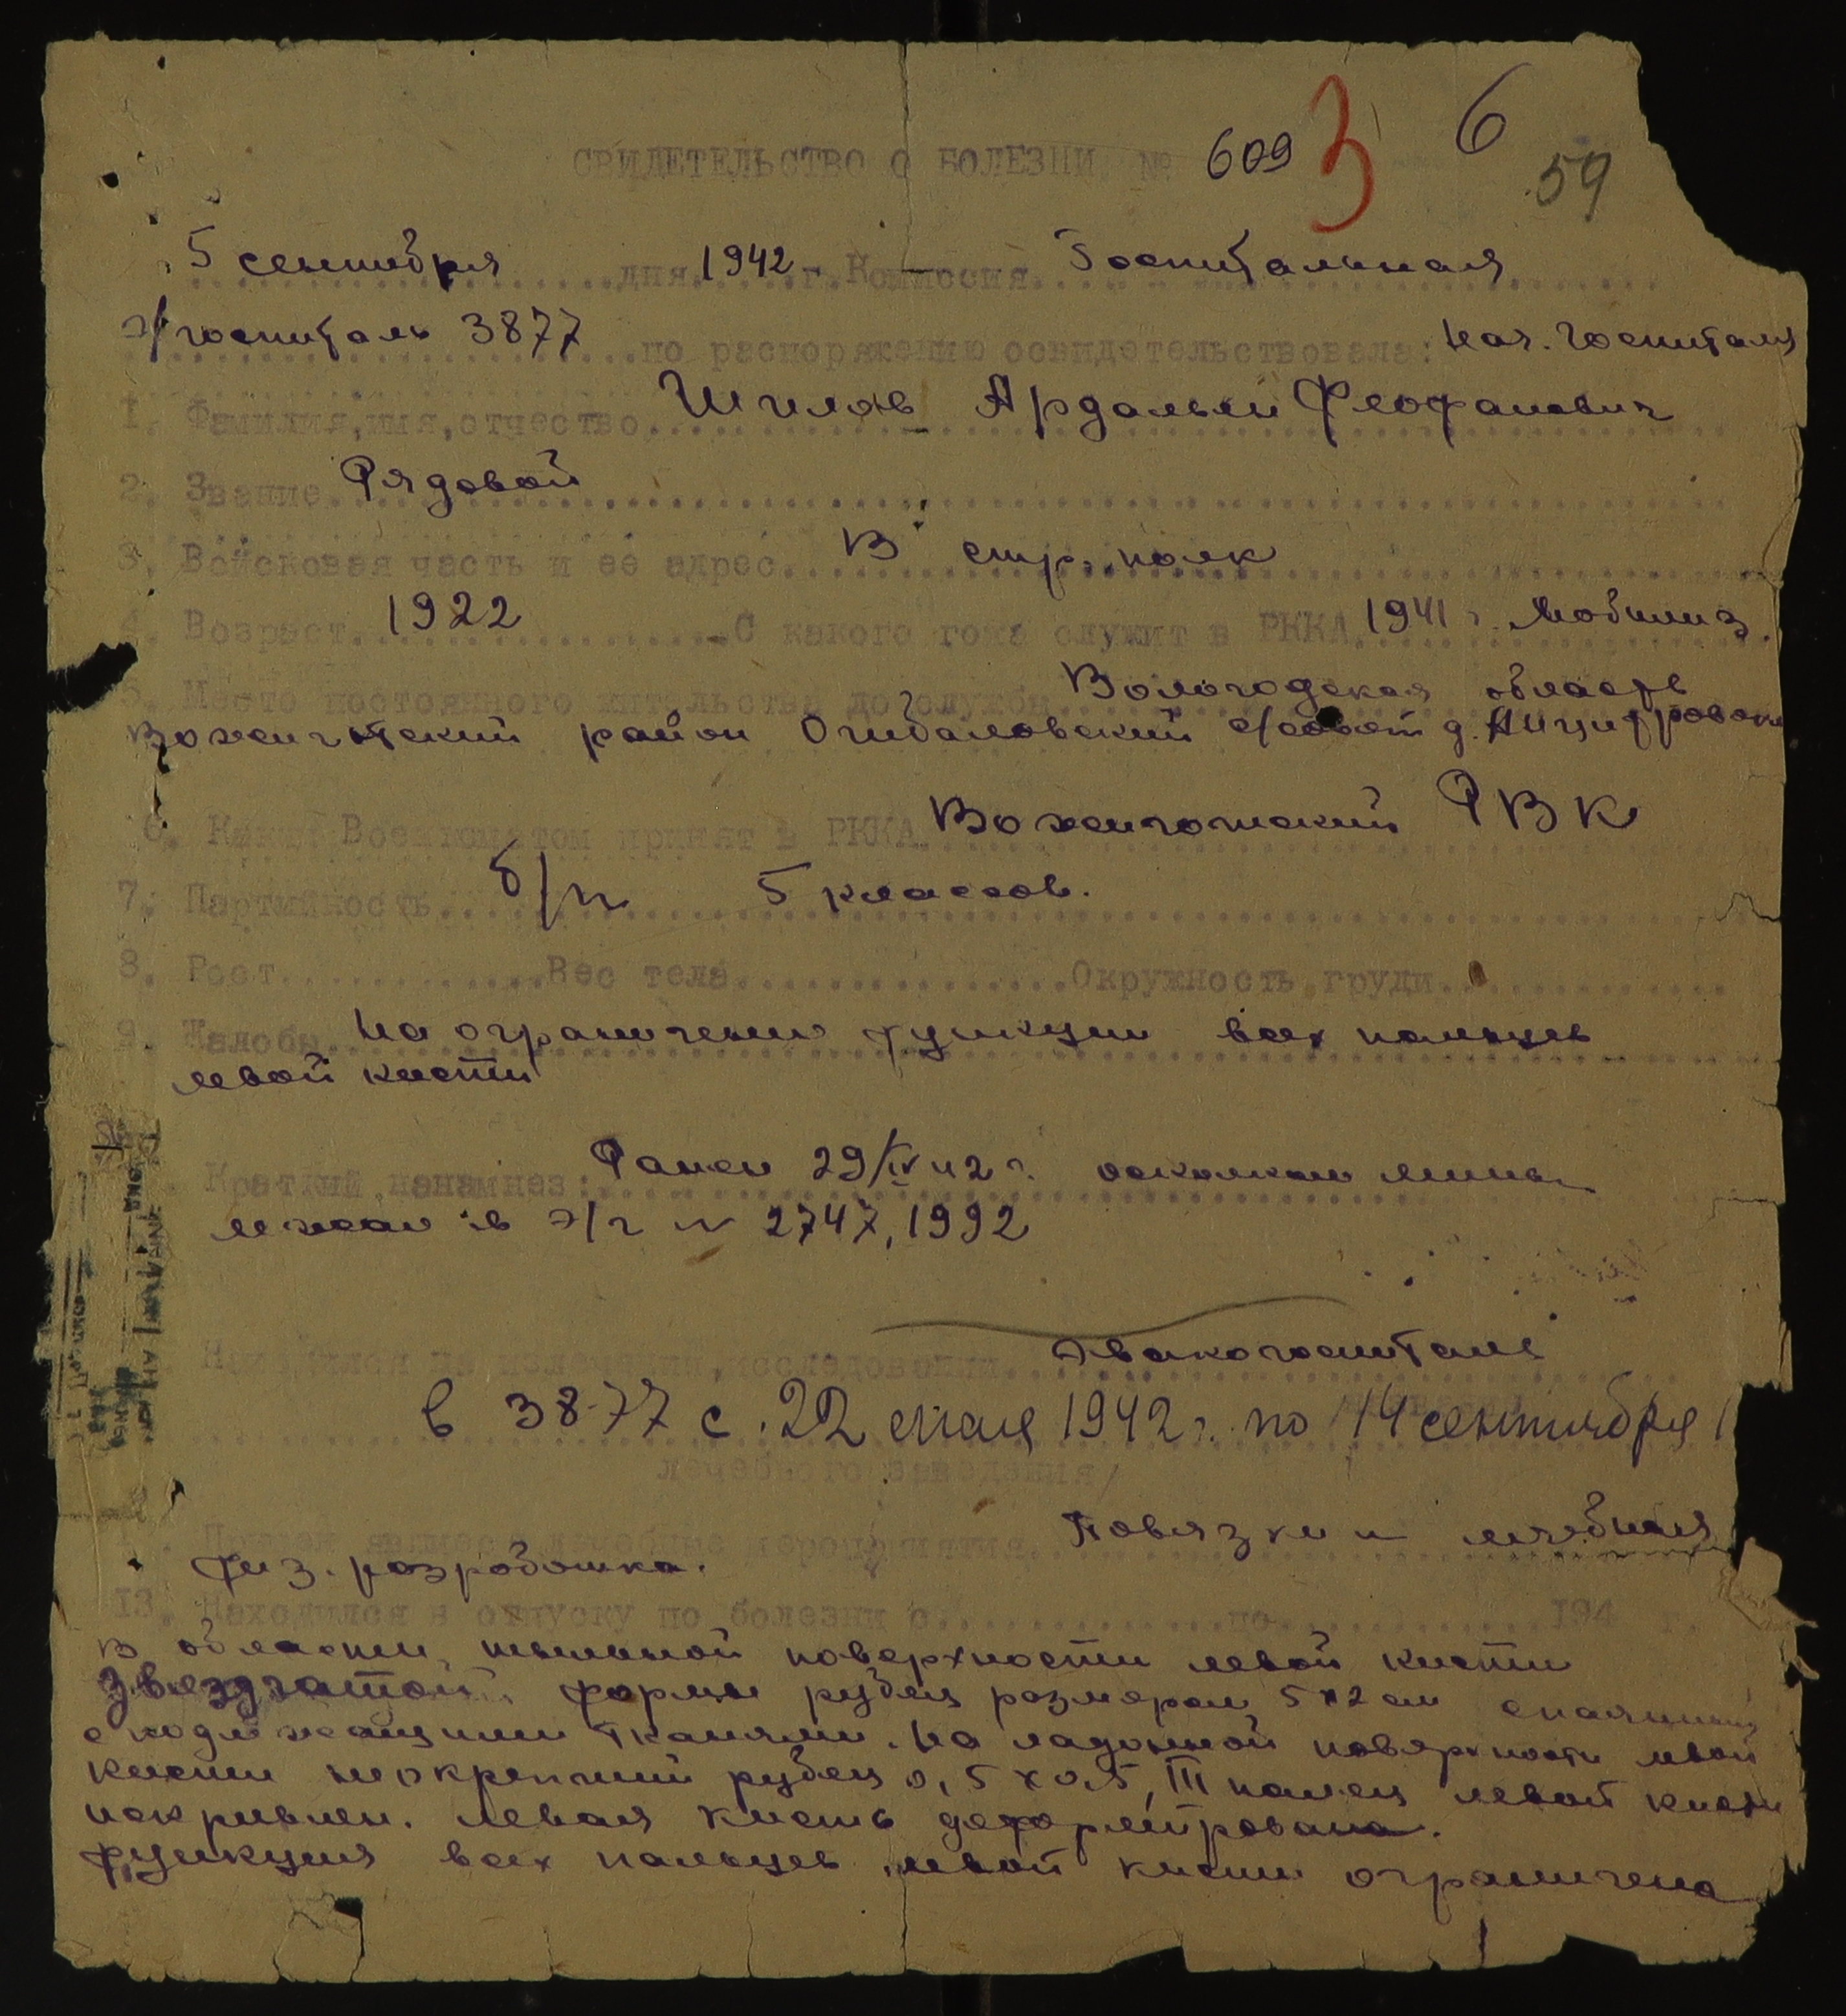 СВИДЕТЕЛЬСТВО О БОЛЕЗНИ № 609 3 6
59
5 сентября дня 1942 г. Комиссия Госпитальная
э/госпиталь 3877 по распоряжению освидетельствовала: нач. госпиталя
1. Фамилия, имя, отчество Шилов Ардальен Феофанович
2. Звание Рядовой
3. Войсковая часть и ее адрес В стр. полк
4. Возраст 1922 С какого года служит в РККА 1941 г. Мобилиз.
5. Место постоянного жительства до службы Вологодская область
район Огибаловский с/совет д.
6. Каким Военкоматом принят в РККА Вожеготский РВК
7. Партийность б/п 5 классов.
8. Рост Вес тела Окружность груди
9. Жалобы На ограничение функции всех пальцев
левой кисти
Краткий анамнез: Ранен 29/IV 42 г. осколком мины
лежал в э/г № 2747, 1992
Находился на излечении, исследовании Эвакогоспитале
в 3877 с 22 мая 1942 г. по 14 сентября 1
лечебного заведения/
лечебные мероприятия Повязки и лечебная
физ. разработка.
13. Находился в отпуску по болезни с по 194 г.
В области тыльной поверхности левой кисти
звездчатой формы рубец размером 5 х 2 см спаянный
с подлежащими тканями. На ладонной поверхности левой
кисти неокрепший рубец 0,5 х 0,5, III палец левой кисти
искривлен. Левая кисть деформирована.
Функция всех пальцев левой кисти ограничена